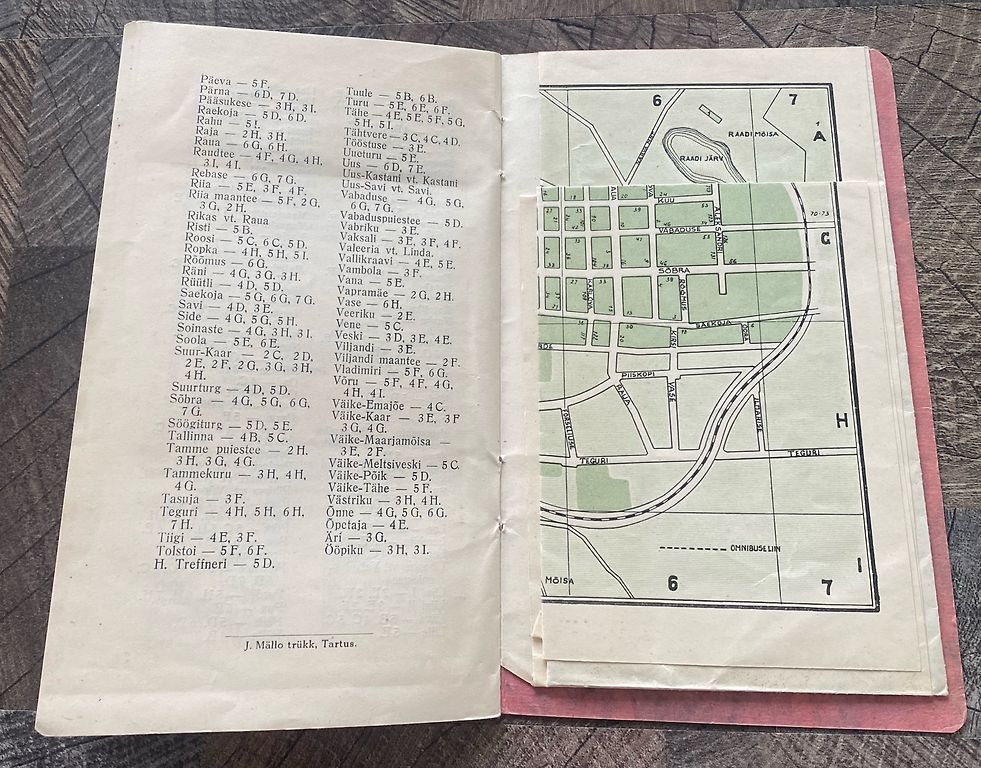 Päeva — 5 F.
Pärna — 6 D, 7 D.
Pääsukese — 3 H, 3 I.
Raekoja — 5 D, 6 D.
Rahu — 5 I.
Raja — 2 H, 3 H.
Raua — 6 G, 6 H.
Raudtee — 4 F, 4 G, 4 H,
3 I, 4 I.
Rebase — 6 G, 7 G.
Riia — 5 E, 3 F, 4 F.
Riia maantee — 5 F, 2 G,
3 G, 2 H.
Rikas vt. Raua
Risti — 5 B.
Roosi — 5 C, 6 C, 5 D.
Ropka — 4 H, 5 H, 5 I.
Rõõmus — 6 G.
Räni — 4 G, 3 G, 3 H.
Rüütli — 4 D, 5 D.
Saekoja — 5 G, 6 G, 7 G.
Savi — 4 D, 3 E.
Side — 4 G, 5 G, 5 H.
Soinaste — 4 G, 3 H, 3 I.
Soola — 5 E, 6 E.
Suur-Kaar — 2 C, 2 D,
2 E, 2 F, 2 G, 3 G, 3 H,
4 H.
Suurturg — 4 D, 5 D.
Sõbra — 4 G, 5 G, 6 G,
7 G.
Söögiturg — 5 D, 5 E.
Tallinna — 4 B, 5 C.
Tamme puiestee — 2 H,
3 H, 3 G, 4 G.
Tammekuru — 3 H, 4 H,
4 G.
Tasuja — 3 F.
Teguri — 4 H, 5 H, 6 H,
7 H.
Tiigi — 4 E, 3 F.
Tolstoi — 5 F, 6 F.
H. Treffneri — 5 D.
Tuule — 5 B, 6 B.
Turu — 5 E, 6 E, 6 F.
Tähe — 4 E, 5 E, 5 F, 5 G,
5 H, 5 I.
Tähtvere — 3 C, 4 C, 4 D.
Tööstuse — 3 E.
Uueturu — 5 E.
Uus — 6 D, 7 E.
Uus-Kastani vt. Kastani
Uus-Savi vt. Savi.
Vabaduse — 4 G, 5 G,
6 G, 7 G.
Vabaduspuiestee — 5 D.
Vabriku — 3 E.
Vaksali — 3 E, 3 F, 4 F.
Valeeria vt. Linda.
Vallikraavi — 4 E, 5 E.
Vambola — 3 F.
Vana — 5 E.
Vapramäe — 2 G, 2 H.
Vase — 6 H.
Veeriku — 2 E.
Vene — 5 C.
Veski — 3 D, 3 E, 4 E.
Viljandi — 3 E.
Viljandi maantee — 2 F.
Vladimiri — 5 F, 6 G.
Võru — 5 F, 4 F, 4 G,
4 H, 4 I.
Väike-Emajõe — 4 C.
Väike-Kaar — 3 E, 3 F
3 G, 3 G.
Väike-Maarjamõisa —
3 E, 2 F.
Väike-Meltsiveski — 5 C.
Väike-Põik — 5 D.
Väike-Tähe — 5 F.
Västriku — 3 H, 4 H.
Õnne — 4 G, 5 G, 6 G.
Õpetaja — 4 E.
Äri — 3 G.
Ööpiku — 3 H, 3 I.
J. Mällo trükk, Tartus.
6
7
A
RAADI MÕISA
RAADI JÄRV
KUU
ALEKSANDRI
70-73
VABADUSE
G
SÕBRA
RÕÕMUS
SAEKOJA
PIISKOPI
RAUA
VASE
H
TEGURI
TEGURI
OMNIBUSE LIIN
MÕISA
6
7
I